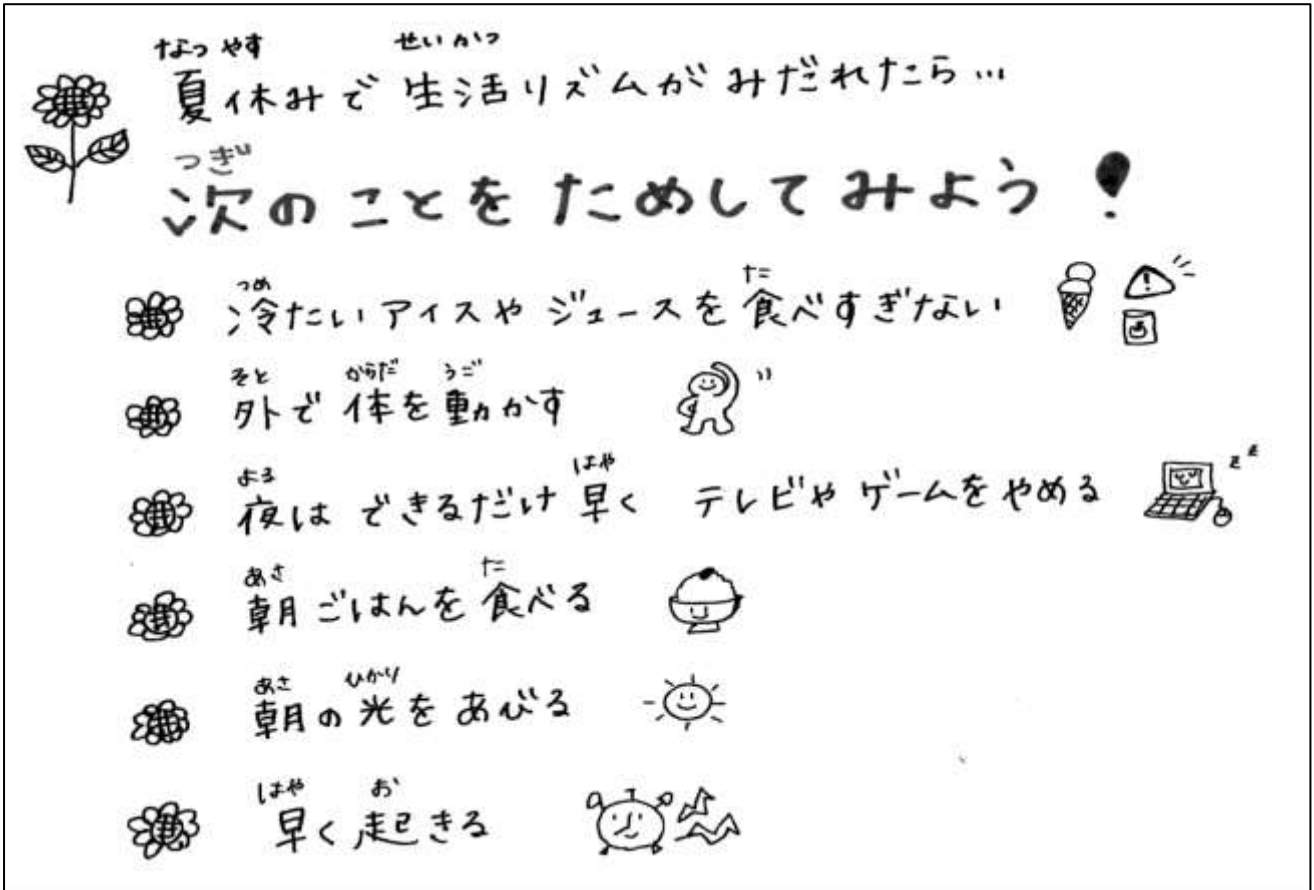 なつ やす せいかつ
夏休みで 生活リズムが みだれたら…
つぎ
次のことを ためしてみよう!
つめ た
冷たい アイスや ジュースを 食べすぎない
そと からだ うご
外で 体を 動かす
よる はや
夜は できるだけ 早く テレビや ゲームを やめる
あさ た
朝ごはんを 食べる
あさ ひかり
朝の 光を あびる
はや お
早く 起きる